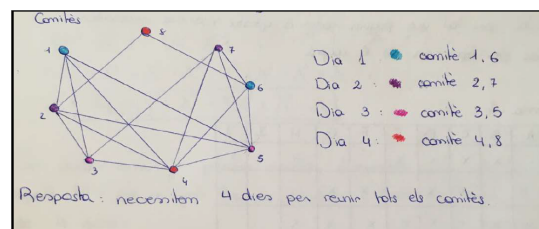 Comitès
8
1
7
6
2
5
3
4
Dia 1 comitè 1,6
Dia 2: comitè 2,7
Dia 3: comitè 3,5
Dia 4: comitè 4,8
Resposta: necessiten 4 dies per reunir tots els comitès.